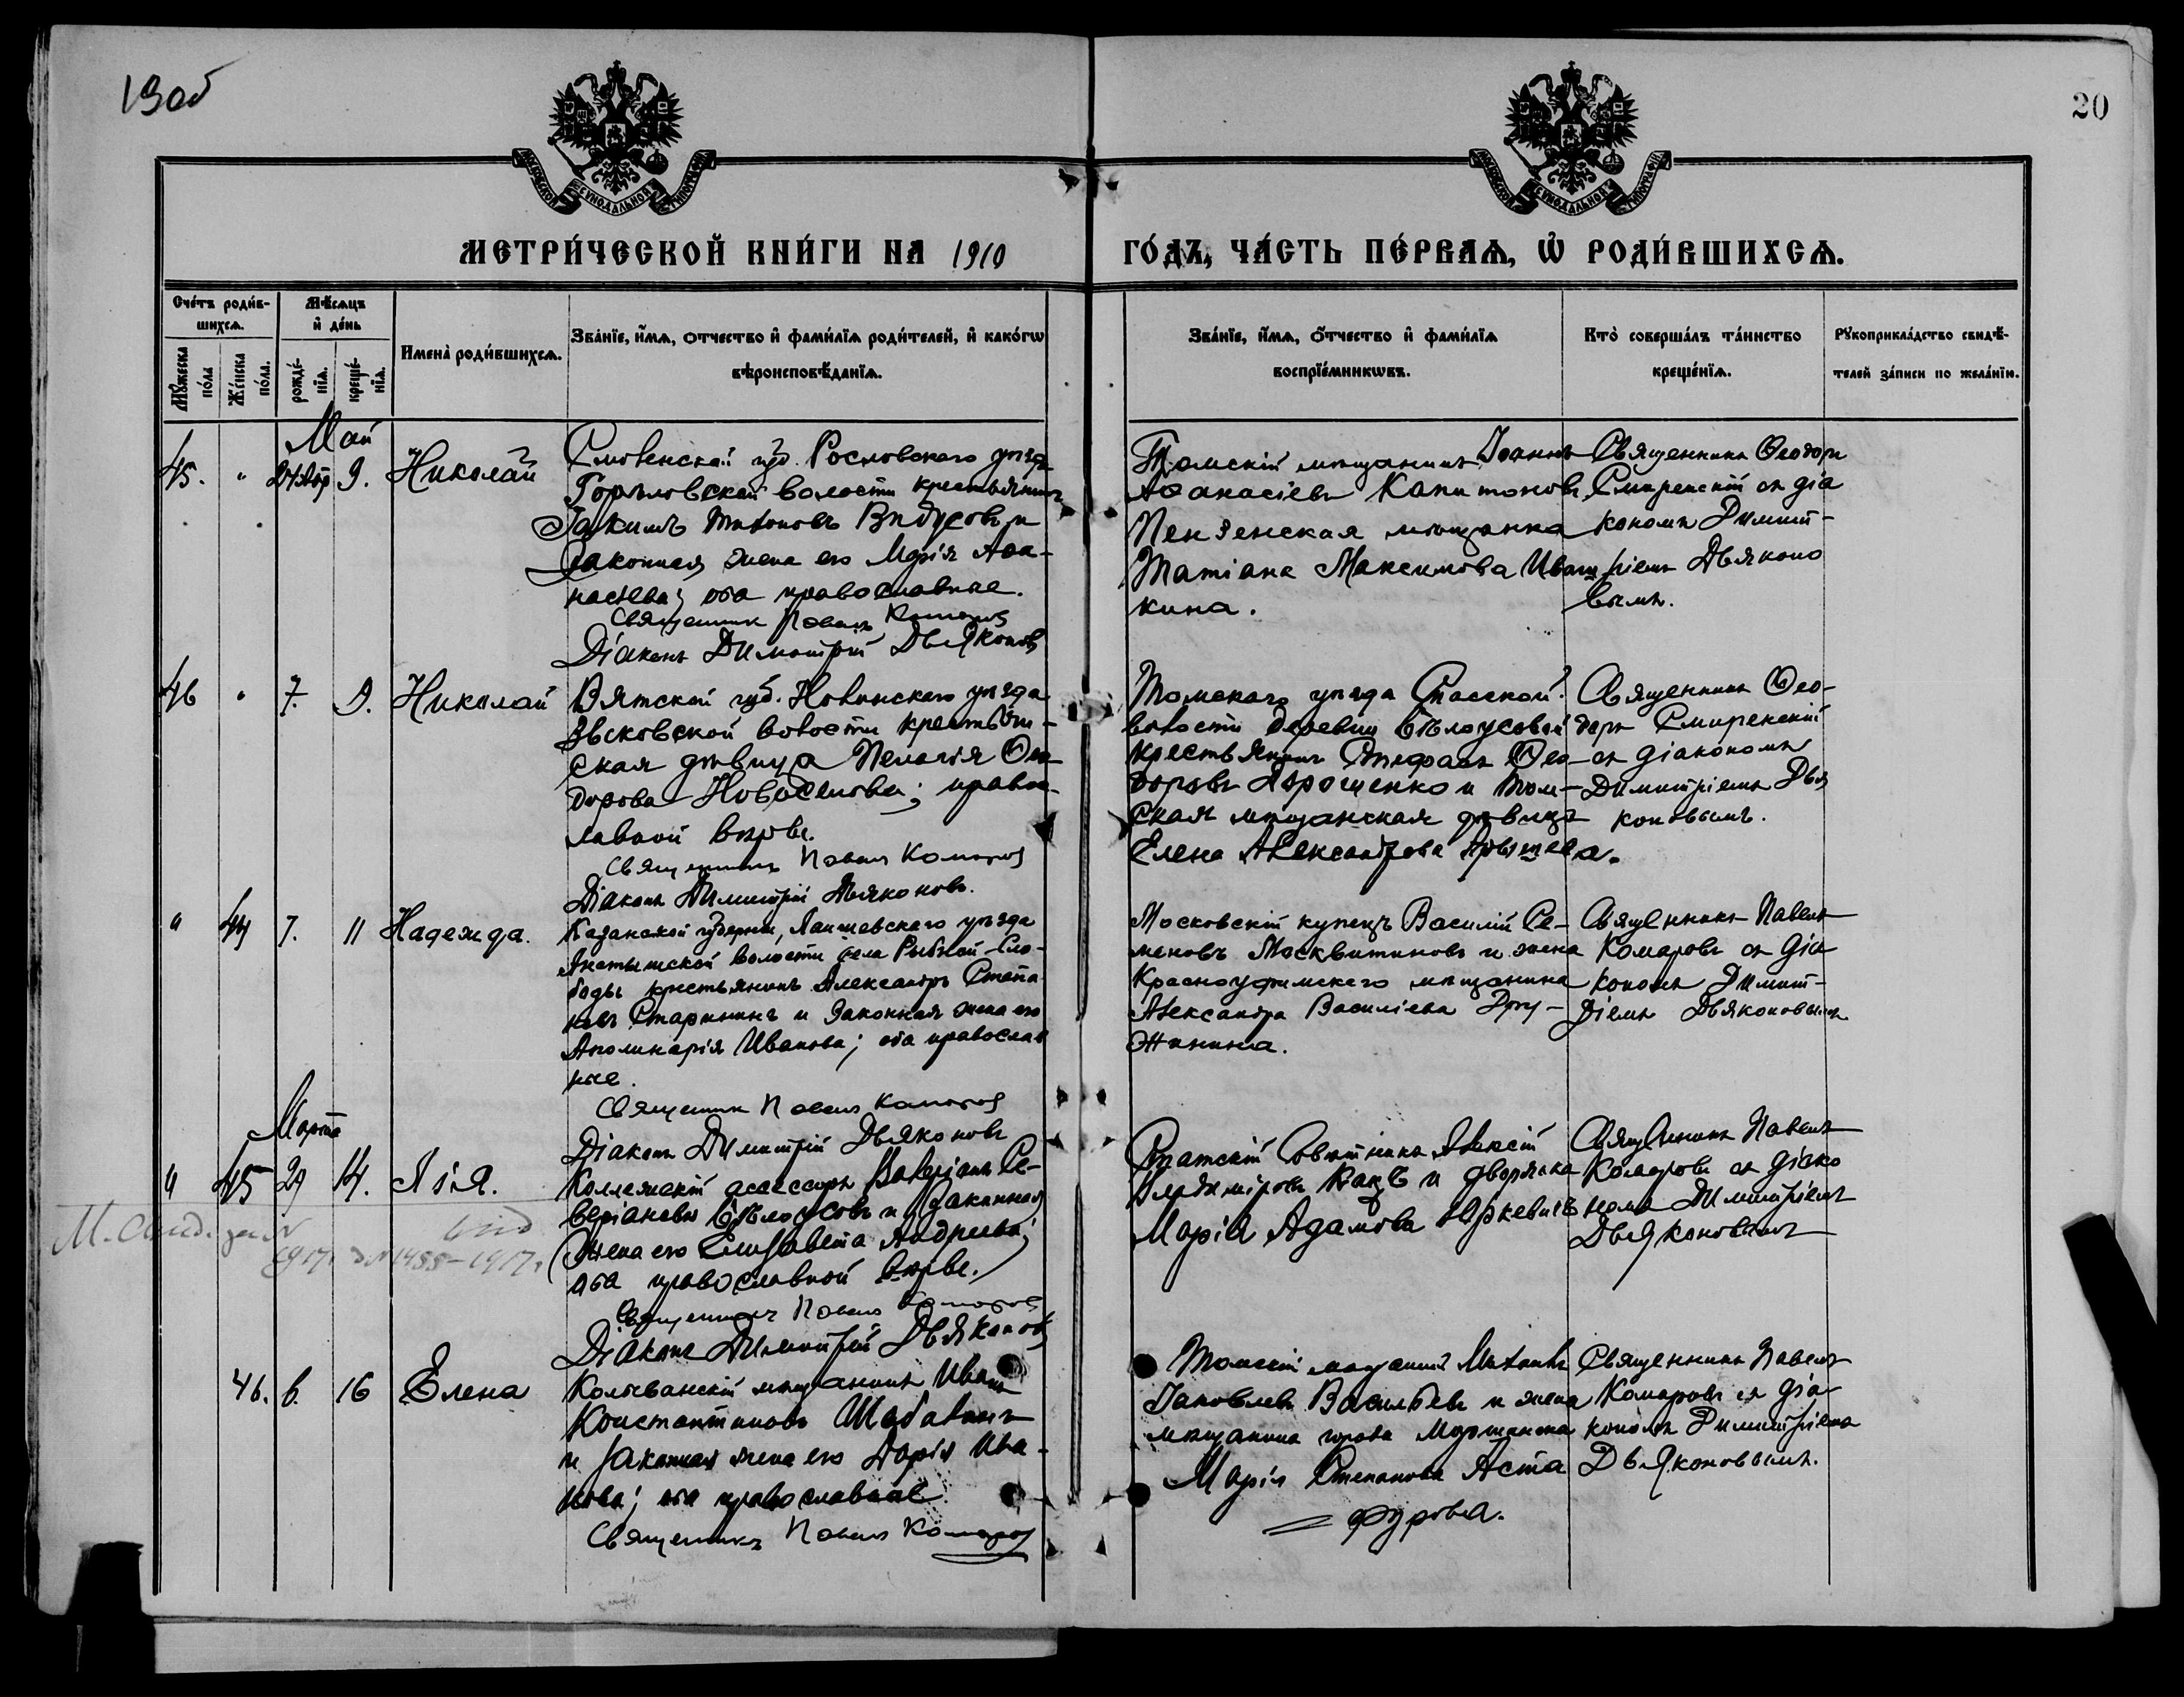 190об
20
МОСКОВСКОЙ СѴНОДАЛЬНОЙ ТИПОГРАФІИ
МОСКОВСКОЙ СѴНОДАЛЬНОЙ ТИПОГРАФІИ
МЕТРИ́ЧЕСКОЙ КНИ́ГИ НА 1910 ГО́ДЪ, ЧА́СТЬ ПЕ́РВАѦ, Ѡ РОДИ́ВШИХСѦ.
Сче́тъ роди́в-
шихсѧ.
Мѣ́сѧцъ
и҆ де́нь
Мꙋ́жеска
по́ла
Же́нска
по́ла.
рожде́-
нїѧ.
креще́-
нїѧ.
Имена̀ роди́вшихсѧ.
Зва́нїе, и҆́мѧ, ѻтчество и҆ фами́лїѧ роди́телей, и҆ како́гѡ
вѣроисповѣ́данїѧ.
Зва́нїе, и҆́мѧ, ѻтчество и҆ фами́лїѧ
воспрїе́мникѡвъ.
Кто̀ соверша́лъ та́инство
креще́нїѧ.
Рꙋкоприкла́дство свидѣ́-
телей за́писи по жела́нїю.
Май
45. " 24 Апр 9. Николай
Смоленской губ. Рословского уѣзда
Горѣловской волости крестьянинъ
Іакимъ Титовъ и
законная жена его Марія Аѳа-
насьева; оба православные.
Священник Павелъ Комаров
Діаконъ Димитрій Дьяконов
Томскій мѣщанинъ Іоаннъ
Аѳанасіевъ Капитоновъ,
Пензенская мѣщанка
Татіана Максимова Иваш
кина.
Священникъ Ѳеодоръ
Смиренскій съ діа
кономъ Димит-
ріемъ Дьяконо
вымъ.
46 " 7. 9. Николай
Вятской губ. Нолинскаго уѣзда
Зыковской волости крестьян-
ская дѣвица Пелагія Ѳео-
дорова Новоселова; правос-
лавной вѣры.
Священникъ Павелъ Комаров
Діаконъ Димитрій Дьяконовъ.
Томскаго уѣзда Спасской
волости деревни Бѣлоусовой
крестьянинъ Стефанъ Ѳео-
доровъ Дорошенко и Том-
ская мѣщанская дѣвица
Елена Александрова
Священникъ Ѳео-
доръ Смиренскій
съ діакономъ
Димитріемъ Дья
коновымъ.
" 44 7. 11 Надежда.
Казанской губерніи, Лаишевскаго уѣзда
Анатышской волости села Рыбной-Сло-
боды крестьянинъ Александръ Степа-
новъ Старинин и законная жена его
Аполинарія Иванова; оба православ
ные.
Священник Павелъ Комаров
Діаконъ Димитрій Дьяконовъ
Московскій купецъ Василій Се-
меновъ Москвитиновъ и жена
Красноуфимского мѣщанина
Александра Василіева Дру-
жинина.
Священникъ Павелъ
Комаровъ съ діа
кономъ Димит-
ріемъ Дьяконовымъ
Марта
" 45 29 14. Лія.
Коллежскій асессоръ Валеріанъ Се-
веріановъ Бѣлоусовъ и законная
жена его Елизавета Андреева;
оба православной вѣры.
Священникъ Павелъ Комаров
Діаконъ Димитрій Дьяконовъ
Статскій Совѣтникъ Алексій
Владиміровъ Кацъ и дворянка
Марія Адамова Юркевичъ
Священникъ Павелъ
Комаровъ съ діако
номъ Димитріемъ
Дьяконовымъ
1917 1488-1917
46. 6. 16 Елена
Колыванскій мѣщанинъ Иванъ
Константиновъ Шабалинъ
и законная жена его Дарія Ива-
нова; оба православные.
Священникъ Павелъ Комаров
Томскій мѣщанинъ Михаилъ
Іаковлевъ Васильевъ и жена
мѣщанина города Моршанска
Марія Степанова Аста
фурова.
Священникъ Павелъ
Комаровъ съ діа
кономъ Димитріемъ
Дьяконовымъ.